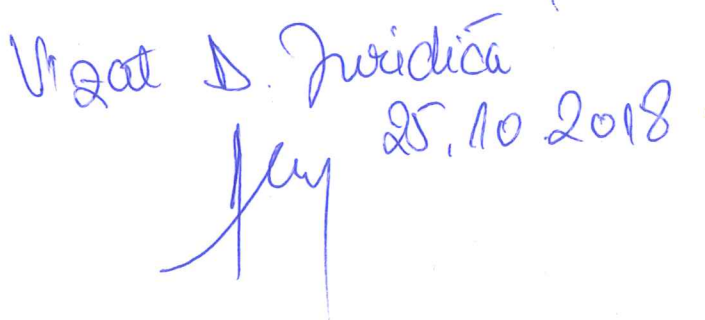 Vizat D. Juridică
25.10.2018